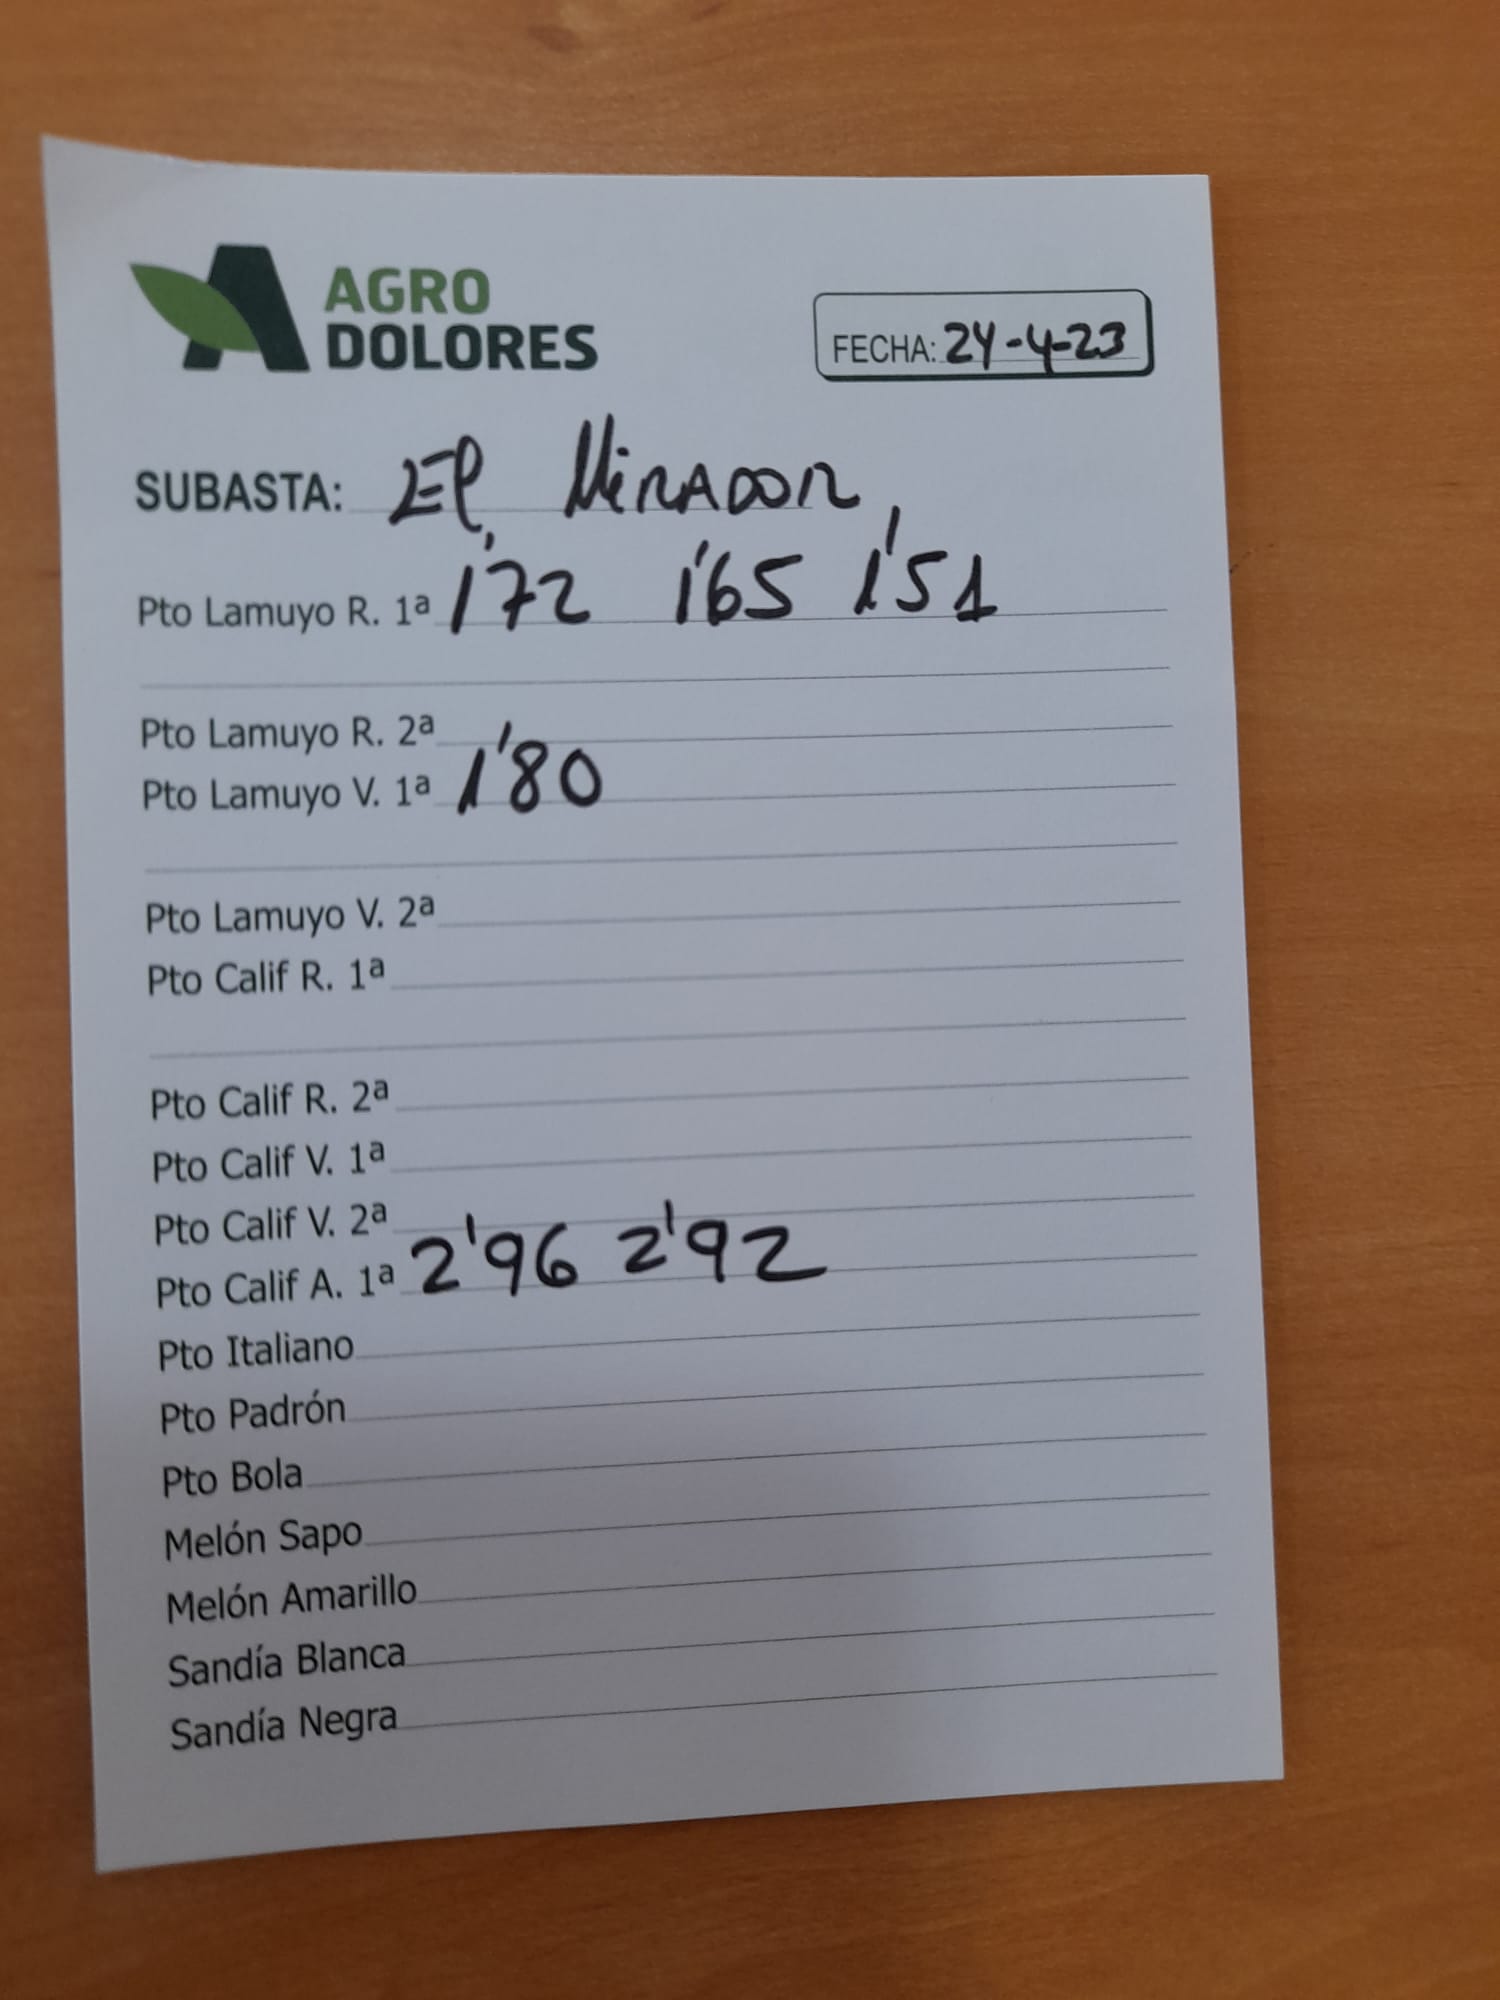 AGRO
DOLORES
FECHA: 24-4-23
SUBASTA: El Mirador
Pto Lamuyo R. 1ª 1'72 1'65 1'51
Pto Lamuyo R. 2ª
Pto Lamuyo V. 1ª 1'80
Pto Lamuyo V. 2ª
Pto Calif R. 1ª
Pto Calif R. 2ª
Pto Calif V. 1ª
Pto Calif V. 2ª
Pto Calif A. 1ª 2'96 2'92
Pto Italiano
Pto Padrón
Pto Bola
Melón Sapo
Melón Amarillo
Sandía Blanca
Sandía Negra